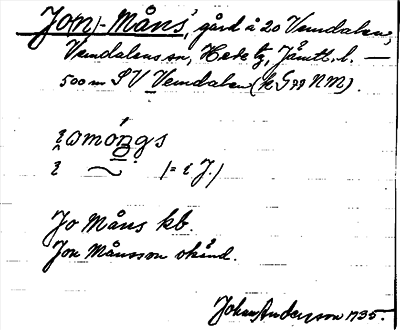 Jo(n)-Måns, gård å 20 Vemdalen,
Vemdalens sn, Hede tg, Jämtl. l. —
500 m SV Vemdalen (k G NM).
i ~ (= i J.)
Jo Måns kb.
Jon Månsson okänd.
Johan Anderson 1735.